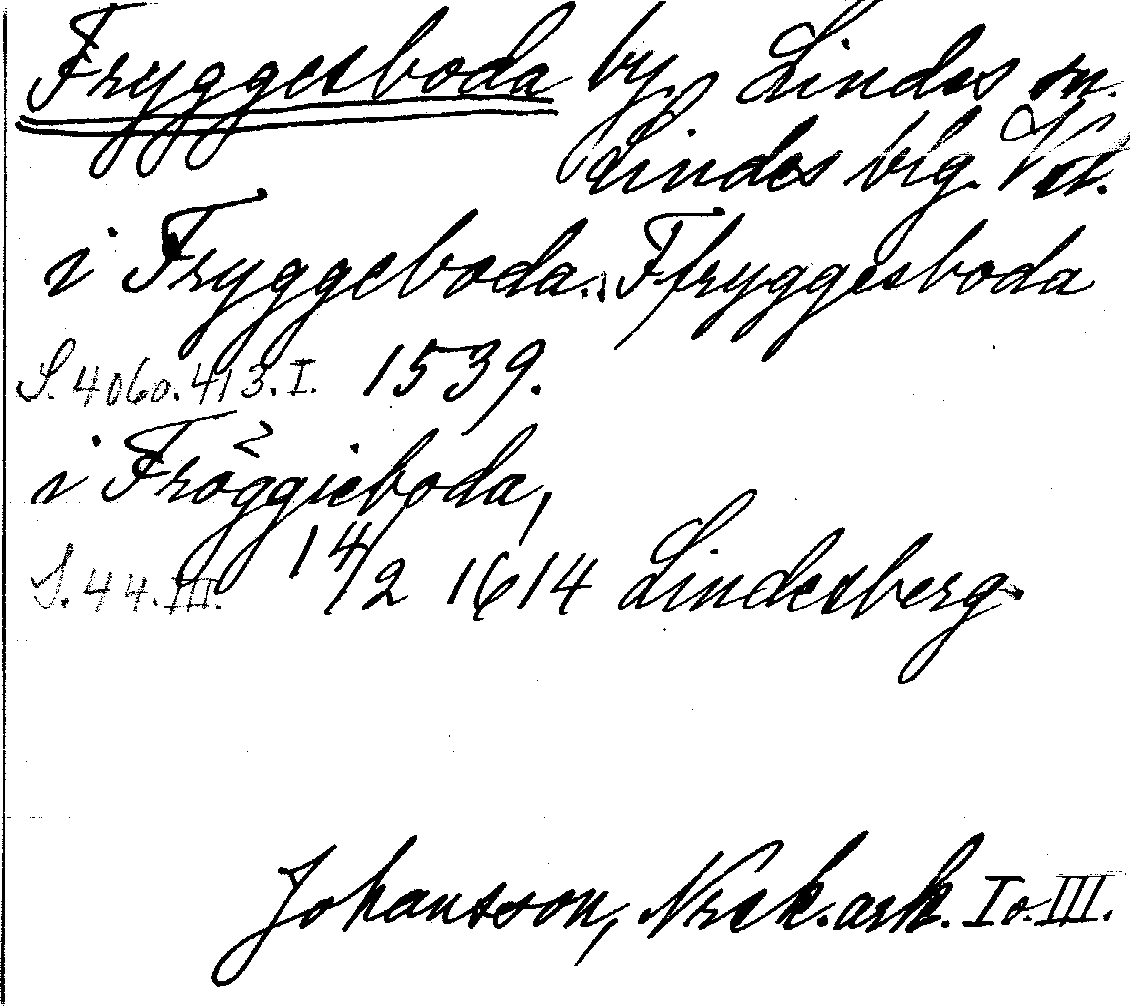 Fryggesboda by, Lindes sn.
Lindes blg. Vstl.
i Fryggeboda., Ffryggesboda
S. 4060. 413. I. 1539.
i Fröggieboda,
S. 44. III. 14/2 1614 Lindesberg.
Johansson, Nrck. ark. I o. III.